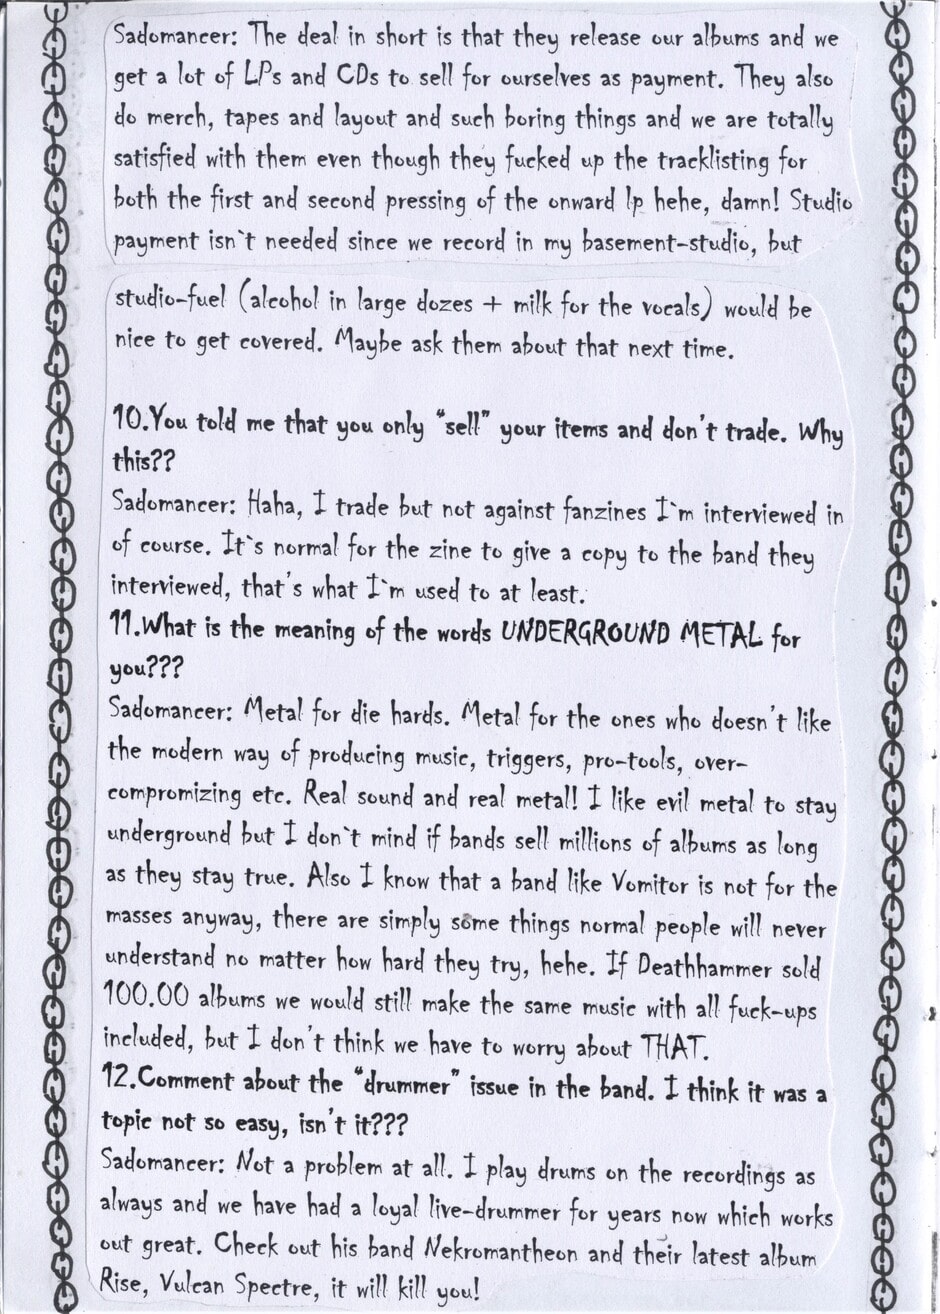 Sadomancer: The deal in short is that they release our albums and we
get a lot of LPs and CDs to sell for ourselves as payment. They also
do merch, tapes and layout and such boring things and we are totally
satisfied with them even though they fucked up the tracklisting for
both the first and second pressing of the onward lp hehe, damn! Studio
payment isn`t needed since we record in my basement-studio, but
studio-fuel (alcohol in large dozes + milk for the vocals) would be
nice to get covered. Maybe ask them about that next time.
10.You told me that you only "sell" your items and don't trade. Why
this??
Sadomancer: Haha, I trade but not against fanzines I`m interviewed in
of course. It`s normal for the zine to give a copy to the band they
interviewed, that's what I`m used to at least.
11.What is the meaning of the words UNDERGROUND METAL for
you???
Sadomancer: Metal for die hards. Metal for the ones who doesn't like
the modern way of producing music, triggers, pro-tools, over-
compromizing etc. Real sound and real metal! I like evil metal to stay
underground but I don`t mind if bands sell millions of albums as long
as they stay true. Also I know that a band like Vomitor is not for the
masses anyway, there are simply some things normal people will never
understand no matter how hard they try, hehe. If Deathhammer sold
100.00 albums we would still make the same music with all fuck-ups
included, but I don't think we have to worry about THAT.
12.Comment about the "drummer" issue in the band. I think it was a
topic not so easy, isn't it???
Sadomancer: Not a problem at all. I play drums on the recordings as
always and we have had a loyal live-drummer for years now which works
out great. Check out his band Nekromantheon and their latest album
Rise, Vulcan Spectre, it will kill you!